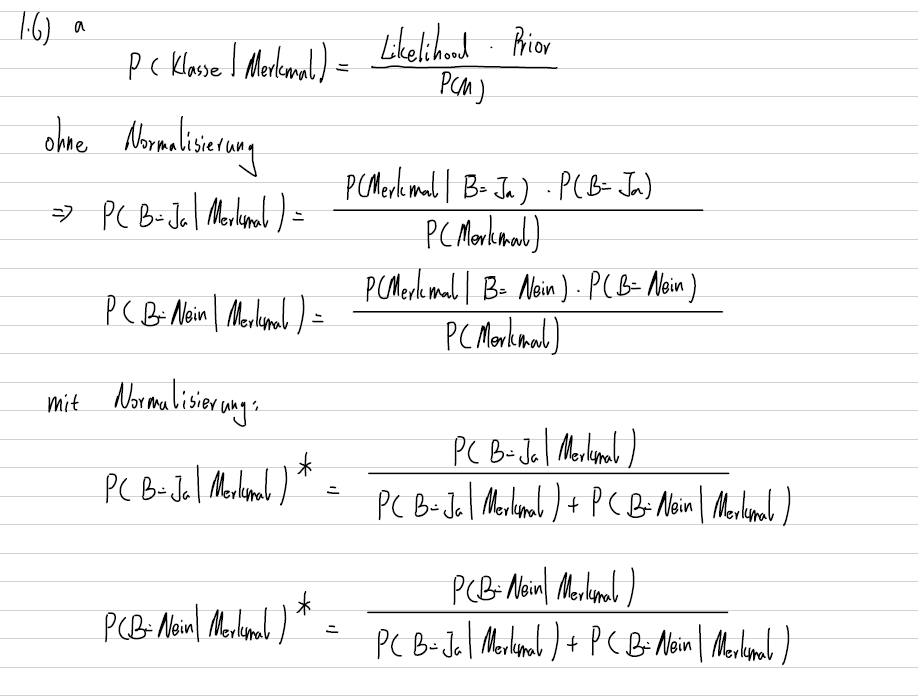 1.6) a
P(Klasse | Merkmal) = Likelihood · Prior / P(M)
ohne Normalisierung
⇒ P(B=Ja | Merkmal) = P(Merkmal | B=Ja) · P(B=Ja) / P(Merkmal)
P(B=Nein | Merkmal) = P(Merkmal | B=Nein) · P(B=Nein) / P(Merkmal)
mit Normalisierung:
P(B=Ja | Merkmal)* = P(B=Ja | Merkmal) / P(B=Ja | Merkmal) + P(B=Nein | Merkmal)
P(B=Nein | Merkmal)* = P(B=Nein | Merkmal) / P(B=Ja | Merkmal) + P(B=Nein | Merkmal)